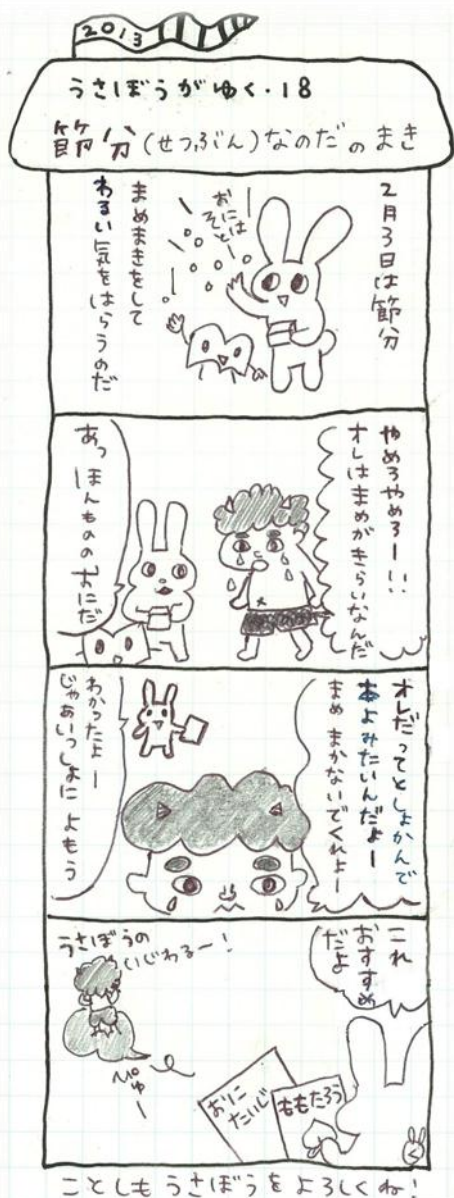 2013
うさぼうがゆく・18
節分(せつぶん)なのだのまき
2月3日は節分
おには
そとー
まめまきをして
わるい気をはらうのだ
やめろやめろー!!
オレはまめがきらいなんだ
あっ ほんもののおにだ
オレだってとしょかんで
本よみたいんだよー
まめ まかないでくれよー
わかったよー
じゃあいっしょに よもう
これ
おすすめ
だよ
ももたろう
おに
たいじ
うさぼうの
いじわるー!
ぴゅー
ことしもうさぼうをよろしくね!